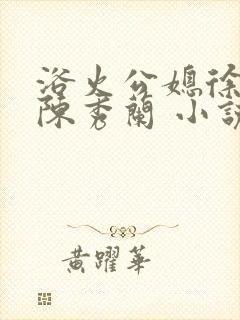 浴火公媳徐
陳秀蘭 小說
黃躍華